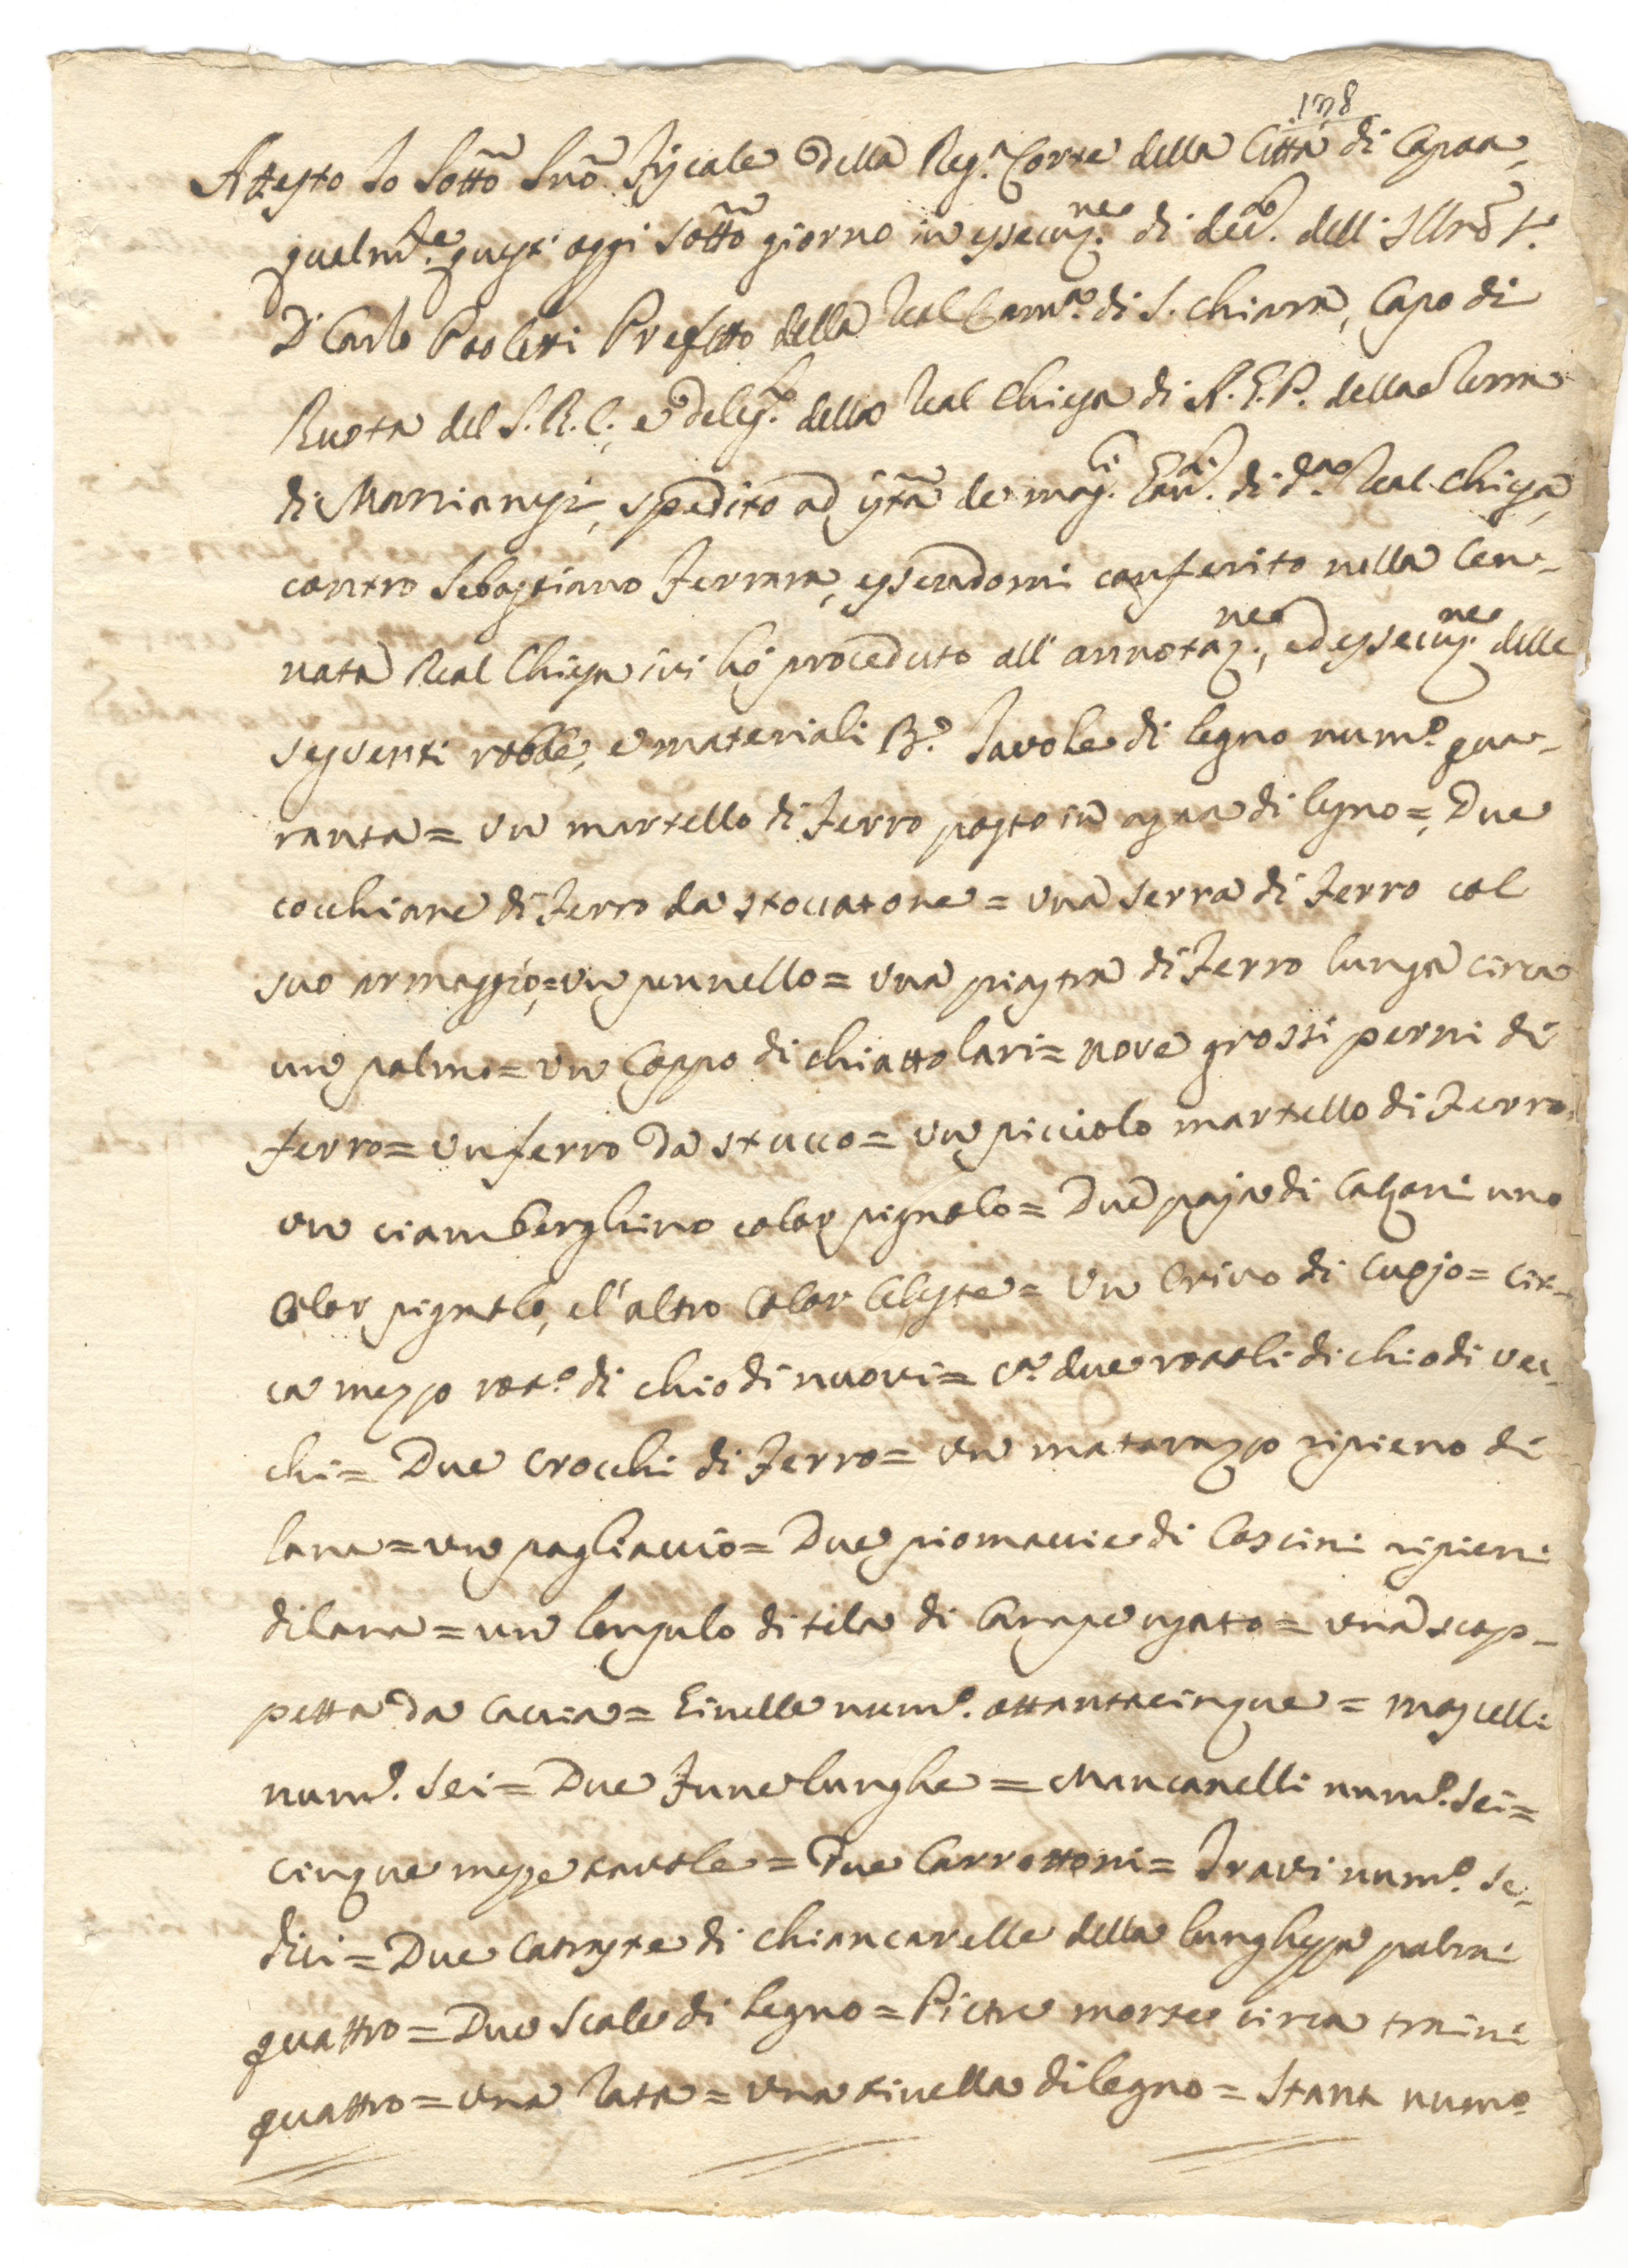 178
Attesto Io Sotto Sno Fiscale della Reg.a Corte della Città di Capua,
qualm.te quest' oggi sotto giorno in essecuz.ne di dec.to dell' Illre S.r
D. Carlo Paoletti Prefetto della Real Cam.a di S. Chiara, Capo di
Ruota del S.R.C., e Deleg.to della Real Chiesa di A.G.P. della Terra
di Marrianise, spedito ad istã de mag.ci Econ.i di d.a Real Chiesa,
contro Sebastiano Ferrara, essendomi conferito nella Cen-
nata Real Chiesa ivi hò proceduto all' annotaz.ne, ed essecuz.ne delle
seguenti robbe, e materiali Tavole di legno num.o qua-
ranta = un martello di Ferro posto in asta di legno = Due
cocchiare di Ferro da stoccatore = una serra di Ferro col
suo armaggio = un pennello = una piastra di Ferro lunga circa
un palmo = un Coppo di chiattolari = nove grossi perni di
ferro = un ferro da stucco = un picciolo martello di Ferro =
un ciamberghino color pignolo = Due paja di Calzoni uno
color pignolo, e l'altro Color Celeste = un Crivo di Cuojo = cir-
ca mezzo rot.o di chiodi nuovi = c.a due rotoli di chiodi vec-
chi = Due Crocchi di Ferro = un matarazzo ripieno di
lana = un pagliaccio = Due piomacci e di Coscini ripieni
di lana = un lenzulo di tela di Canape usato = una scop-
petta da Caccia = Tinelle num.o ottantacinque = mascelli
num.o sei = Due Fune lunghe = Mancanelli num.o sei =
cinque mezze tavole = Due Carrottoni = Travi num.o se-
dici = Due Cataste di Chiancarelle della lunghezza palmi
quattro = Due Scale di legno = Pietre morte circa traini
quattro = una lata = una tinella di legno = Stanti num.o